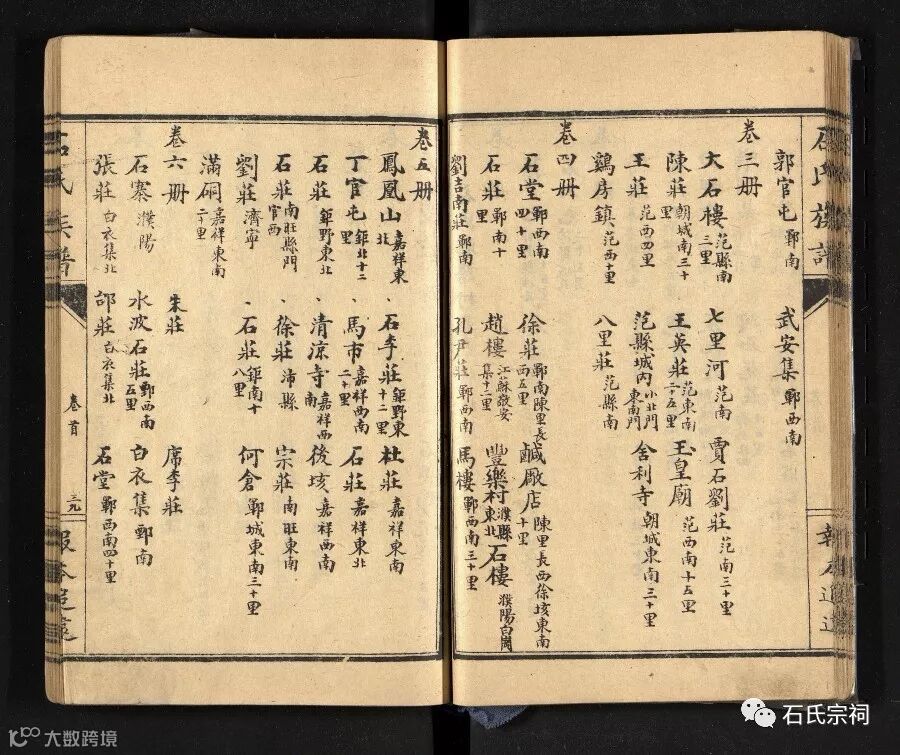 石氏族譜
郭官屯 鄆南 武安集 鄆西南
卷三册
大石樓 范縣南三里 七里河 范南 賈石劉莊 范南三十里
陳莊 朝城南三十里 王英莊 范東南二十五里 玉皇廟 范西南十五里
王莊 范西四里 范縣城内 小北門東南門 舍利寺 朝城東南三十里
鷄房鎮 范西十里 八里莊 范縣南
卷四册
石堂 鄆西南四十里 徐莊 鄆南陳里長西五里 鹹廠店 陳里長西徐垓東南十里
石莊 鄆南十里 趙樓 江蘇敬安集十二里 豐樂村 濮縣東北 石樓 濮陽白崗
劉吉南莊 鄆南 孔尹莊 鄆西南 馬樓 鄆西南三十里
卷五册
鳳凰山 嘉祥東北 石李莊 鉅野東十二里 杜莊 嘉祥東南
丁官屯 鉅北十二里 馬市 嘉祥西南二十里 石莊 嘉祥東北
石莊 鉅野東北里 清涼寺 嘉祥西南 後垓 嘉祥西南
石莊 南旺縣門官西 徐莊 沛縣 宗莊 南旺東南
劉莊 濟寧 石莊 鉅南十八里 何倉 鄆城東南三十里
滿硐 嘉祥東南二十里
卷六册 朱莊 席李莊
石寨 濮陽 水波石莊 鄆西南五里 白衣集 鄆南
張莊 白衣集北 邵莊 白衣集北 石堂 鄆西南四十里
石氏族譜 卷首 三九 報本追遠
石氏宗祠
大数跨境